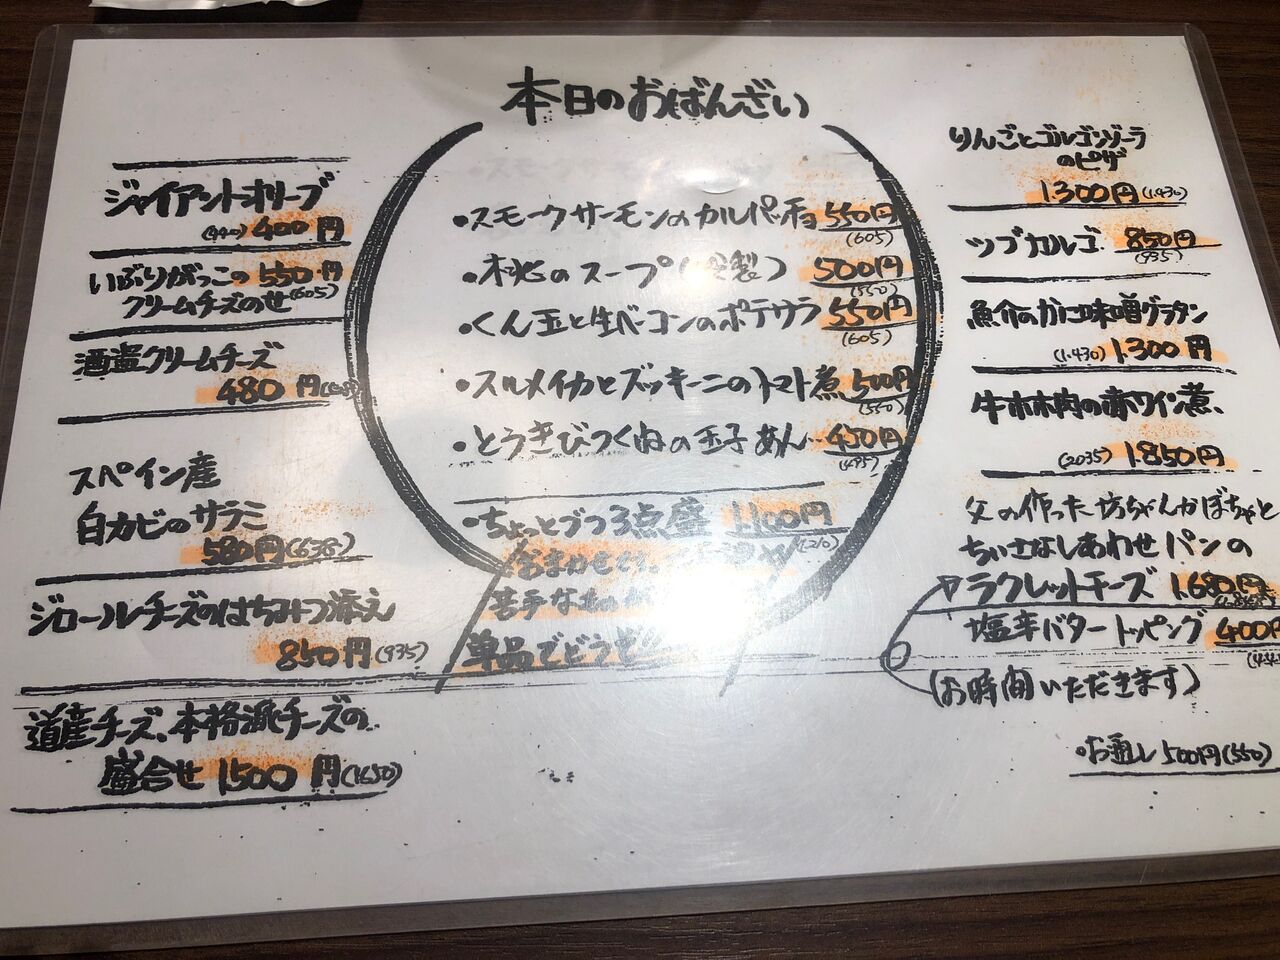 本日のおばんざい
ジャイアントオリーブ
(440) 400円
いぶりがっこの 550円
クリームチーズのせ (605)
酒盗クリームチーズ
480円
スペイン産
白カビのサラミ
580円(638)
ジロールチーズのはちみつ添え
850円(935)
道産チーズ、本格派チーズの
盛合せ 1500円(1650)
スモークサーモン
・スモークサーモンのカルパッチョ 550円
(605)
・桃のスープ(冷製) 500円
(550)
・くん玉と生ベーコンのポテサラ 550円
(605)
・スルメイカとズッキーニのトマト煮 500円
(550)
・とうきびつくねの玉子あん… 450円
(495)
・ちょっとづつ3点盛 1.100円
(1210)
おまかせです。
苦手なものが
単品でどうぞ
りんごとゴルゴンゾーラ
のピザ
1.300円(1.430)
ツブカルゴ 850円
(935)
魚介のかに味噌グラタン
(1.430) 1.300円
牛ホホ肉の赤ワイン煮、
(2035) 1.850円
父の作った坊ちゃんかぼちゃと
ちいさなしあわせパンの
ラクレットチーズ 1.680円
塩辛バタートッピング 400円
(お時間いただきます)
・お通し 500円(550)